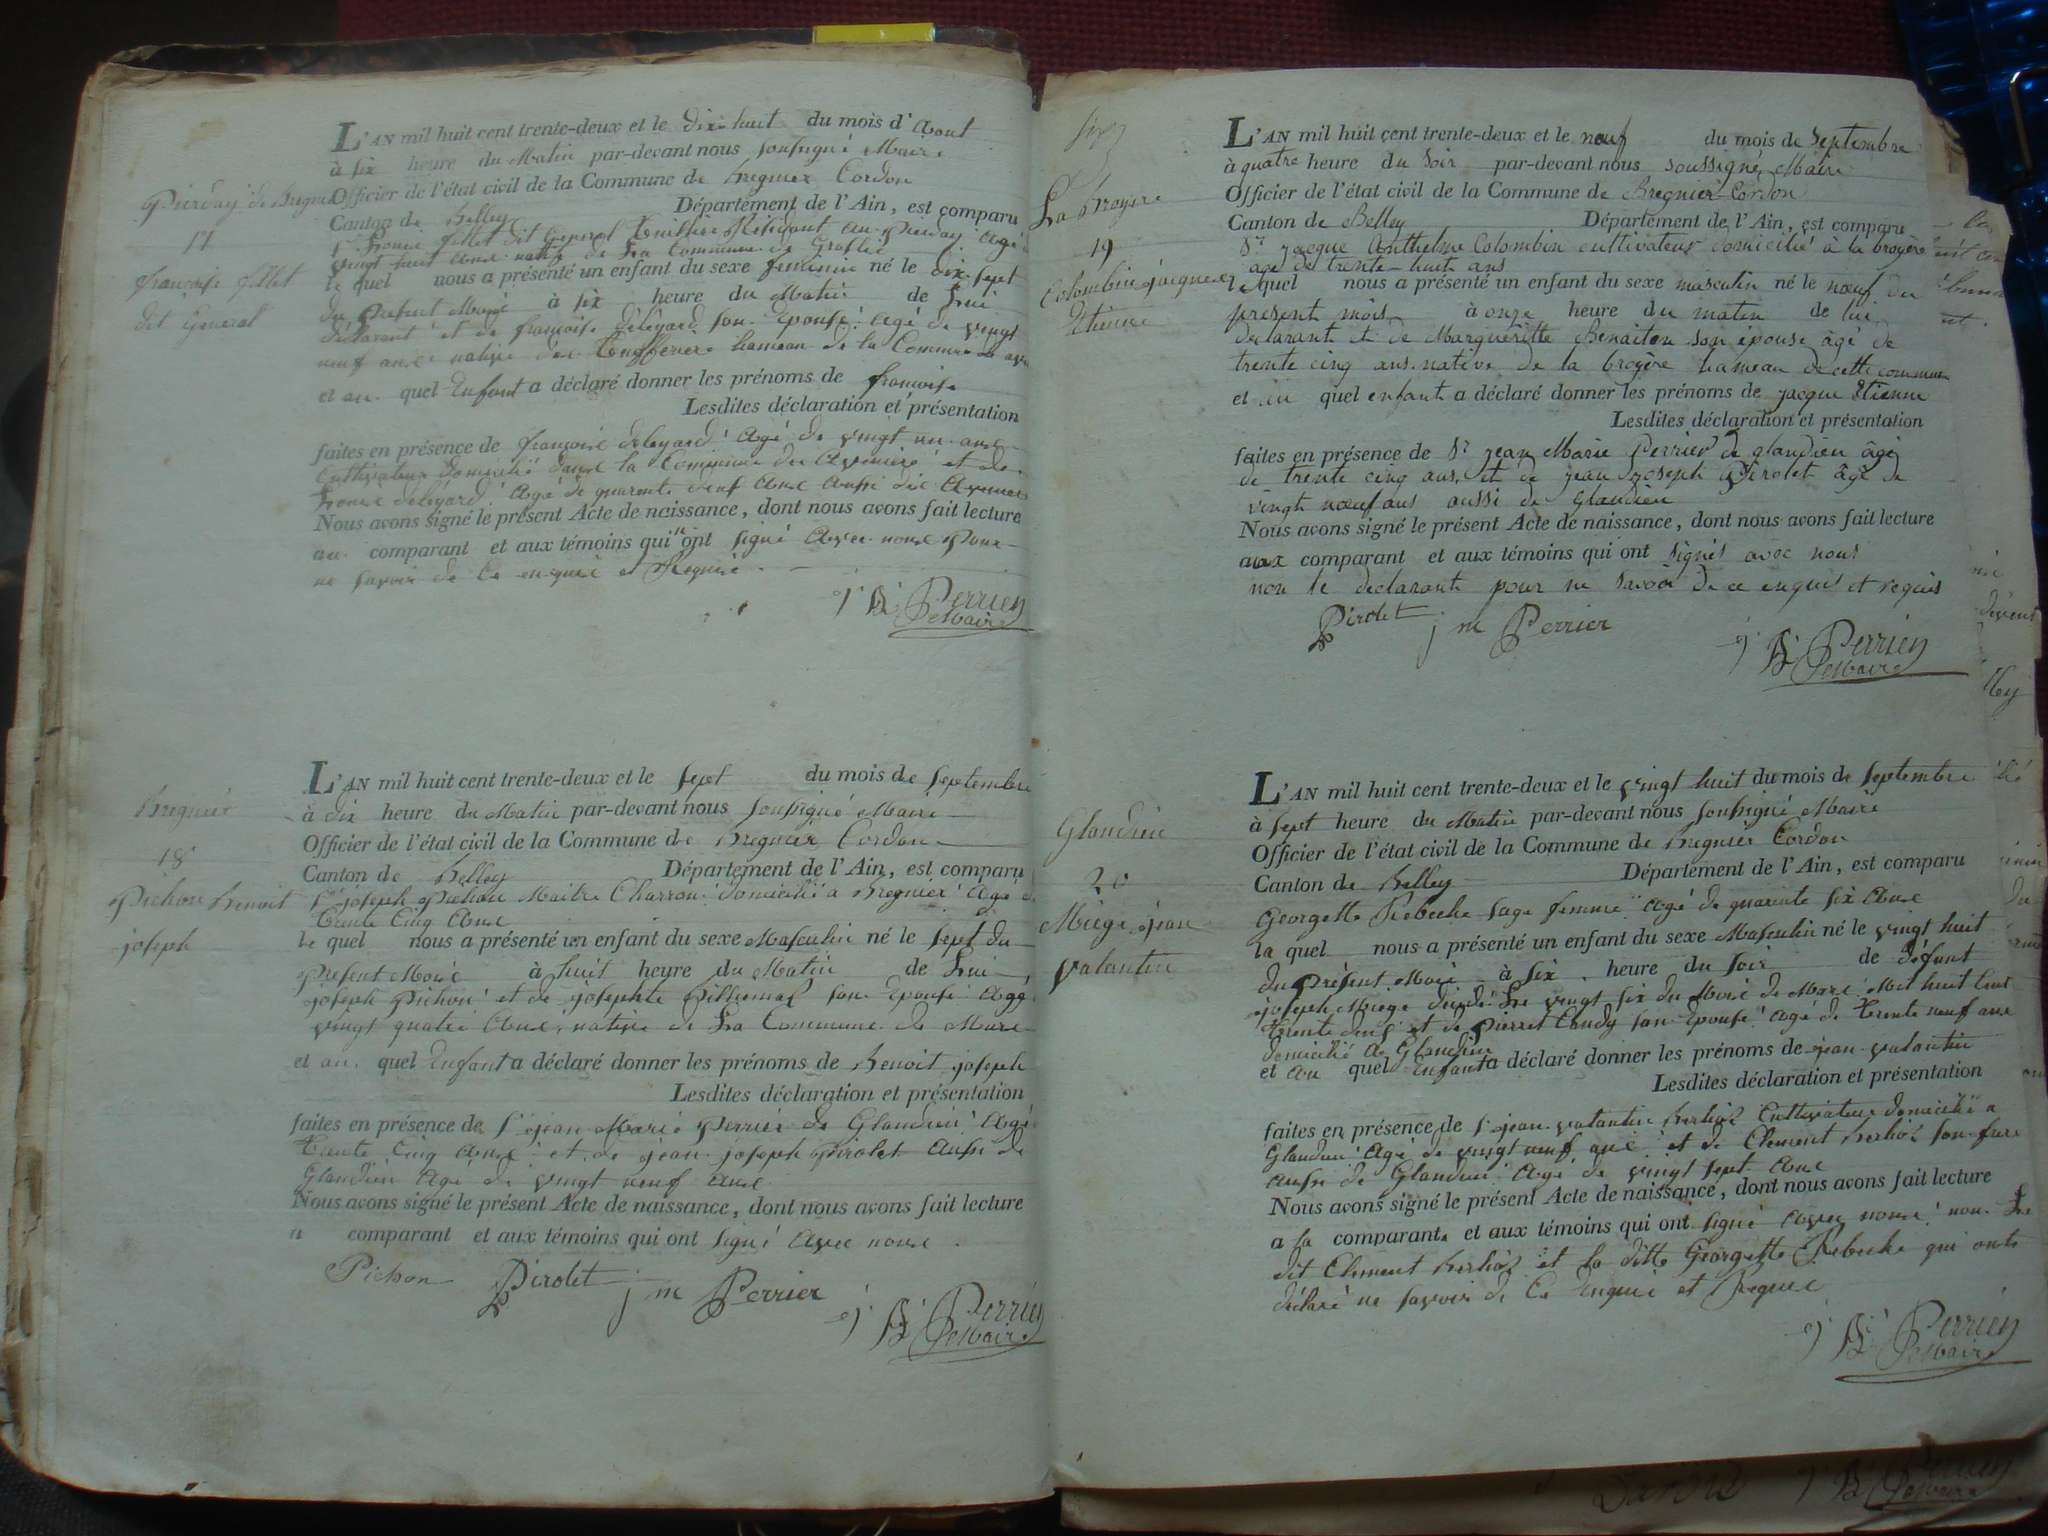 Pierday de Bregnier
17
françoise fillet
dit General
L'AN mil huit cent trente-deux et le dix huit du mois d'Aout
à six heure du Matin par-devant nous soussigné Maire
Officier de l'état civil de la Commune de Bregnier Cordon
Canton de Belley Département de l'Ain, est comparu
fillet dit General Résidant au Pierday agé
vingt huit ans natif de la Commune de
le quel nous a présenté un enfant du sexe feminin né le dix sept
du present Mois à six heure du Matin de lui
déclarant et de françoise deleyard son epouse agé de vingt
neuf ans native des hameau de la Commune
et au quel Enfant a déclaré donner les prénoms de françoise
Lesdites déclaration et présentation
faites en présence de françois deleyard agé de vingt un ans
Cultivateur domicilié dans la Commune des Avenieres et de
deleyard agé de quarente neuf ans aussi des Avenieres
Nous avons signé le présent Acte de naissance, dont nous avons fait lecture
au comparant et aux témoins qui n'ont signé avec nous pour
ne savoir de ce enquis et Requis
Perrien
Maire
Bregnier
18
Pichon Benoit
joseph
L'AN mil huit cent trente-deux et le sept du mois de septembre
à dix heure du Matin par-devant nous soussigné Maire
Officier de l'état civil de la Commune de Bregnier Cordon
Canton de Belley Département de l'Ain, est comparu
Sr joseph Pichon Maitre Charron domicilié a Bregnier agé de
trente Cinq ans
le quel nous a présenté un enfant du sexe Masculin né le sept du
present Mois à huit heure du Matin de lui
joseph Pichon et de josephte son epouse agé
vingt quatre ans, native de la Commune de Murs
et au quel Enfant a déclaré donner les prénoms de Benoit joseph
Lesdites déclaration et présentation
faites en présence de Sr jean Marie Perrier de Glandieu agé
trente Cinq ans et de jean joseph Pirolet aussi de
Glandieu agé de vingt neuf ans
Nous avons signé le présent Acte de naissance, dont nous avons fait lecture
a comparant et aux témoins qui ont signé avec nous
Pichon Pirolet j m Perrier
Perrien
Maire
La broyere
19
Colombin jacque
Etienne
L'AN mil huit cent trente-deux et le nœuf du mois de Septembre
à quatre heure du soir par-devant nous soussigné Maire
Officier de l'état civil de la Commune de Bregnier-Cordon
Canton de Belley Département de l'Ain, est comparu
Sr jacque Anthelme Colombin cultivateur domicilié à la broyère
age de trente-huit ans
le quel nous a présenté un enfant du sexe masculin né le nœuf du
present mois à onze heure du matin de lui
declarant et de Margueritte Benaiton son épouse âgé de
trente cinq ans native de la broyère hameau de cette commune
et au quel enfant a déclaré donner les prénoms de jacque Etienne
Lesdites déclaration et présentation
faites en présence de Sr jean Marie Perrier de glandieu âgé
de trente cinq ans et de jean joseph Pirolet âgé de
vingt nœuf ans aussi de Glandieu
Nous avons signé le présent Acte de naissance, dont nous avons fait lecture
aux comparant et aux témoins qui ont signés avec nous
non le declarant pour ne savoir de ce enquis et requis
Pirolet j m Perrier
Perrien
Maire
Glandieu
20
Miege jean
valantin
L'AN mil huit cent trente-deux et le vingt huit du mois de septembre
à sept heure du Matin par-devant nous soussigné Maire
Officier de l'état civil de la Commune de Bregnier Cordon
Canton de Belley Département de l'Ain, est comparu
Georgette Rebecke sage femme agé de quarente six ans
la quel nous a présenté un enfant du sexe Masculin né le vingt huit
du Présent Mois à six heure du soir de défunt
joseph Miege décédé le vingt six du Mois de Mars Mil huit Cent
trente deux et de Pierret Candy son epouse agé de trente neuf ans
domicilié a Glandieu
et au quel enfant a déclaré donner les prénoms de jean valantin
Lesdites déclaration et présentation
faites en présence de Sr jean valantin Berlioz Cultivateur domicilié a
Glandieu agé de vingt neuf ans et de Clement Berlioz son frere
aussi de Glandieu agé de vingt sept ans
Nous avons signé le présent Acte de naissance, dont nous avons fait lecture
a la comparante et aux témoins qui ont signé avec nous non le
dit Clement Berlioz et la ditte Georgette Rebecke qui onts
déclaré ne savoir de Ce enquis et Requis
Perrien
Maire